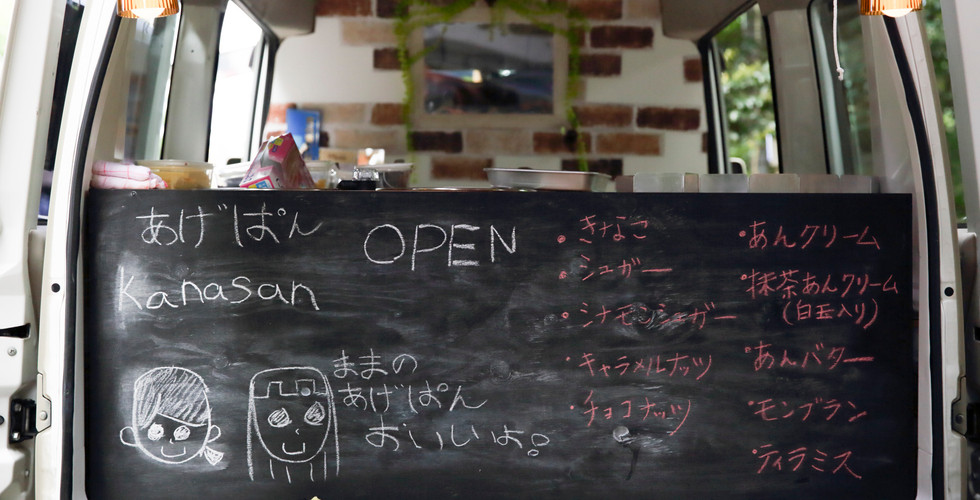 あげぱん
Kanasan
OPEN
ままの
あげぱん
おいしいよ。
・きなこ
・シュガー
・シナモンシュガー
・キャラメルナッツ
・チョコナッツ
・あんクリーム
・抹茶あんクリーム
(白玉入り)
・あんバター
・モンブラン
・ティラミス